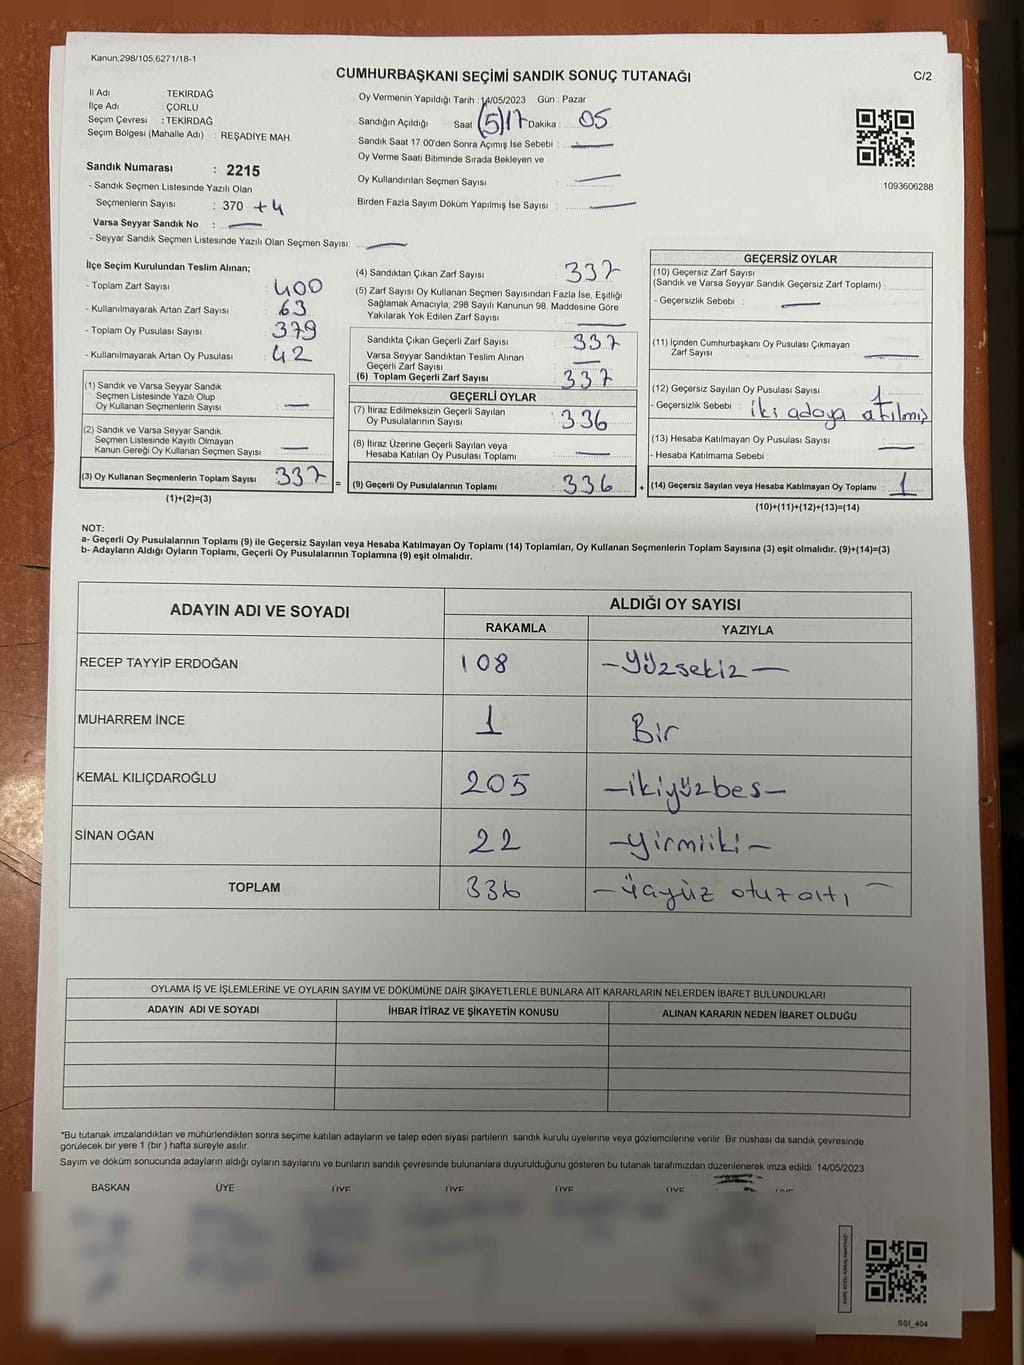 Kanun;298/105,6271/18-1
CUMHURBAŞKANI SEÇİMİ SANDIK SONUÇ TUTANAĞI
C/2
İl Adı : TEKİRDAĞ
İlçe Adı : ÇORLU
Seçim Çevresi : TEKİRDAĞ
Seçim Bölgesi (Mahalle Adı) : REŞADİYE MAH.
Sandık Numarası : 2215
- Sandık Seçmen Listesinde Yazılı Olan
Seçmenlerin Sayısı : 370 +4
Varsa Seyyar Sandık No :
- Seyyar Sandık Seçmen Listesinde Yazılı Olan Seçmen Sayısı:
Oy Vermenin Yapıldığı Tarih : 14/05/2023 Gün : Pazar
Sandığın Açıldığı Saat (5)17 Dakika : 05
Sandık Saat 17.00'den Sonra Açımış İse Sebebi :
Oy Verme Saati Bitiminde Sırada Bekleyen ve
Oy Kullandırılan Seçmen Sayısı :
Birden Fazla Sayım Döküm Yapılmış İse Sayısı :
1093606288
İlçe Seçim Kurulundan Teslim Alınan;
- Toplam Zarf Sayısı : 400
- Kullanılmayarak Artan Zarf Sayısı : 63
- Toplam Oy Pusulası Sayısı : 379
- Kullanılmayarak Artan Oy Pusulası : 42
(1) Sandık ve Varsa Seyyar Sandık
Seçmen Listesinde Yazılı Olup
Oy Kullanan Seçmenlerin Sayısı :
(2) Sandık ve Varsa Seyyar Sandık
Seçmen Listesinde Kayıtlı Olmayan
Kanun Gereği Oy Kullanan Seçmen Sayısı :
(3) Oy Kullanan Seçmenlerin Toplam Sayısı : 337
(1)+(2)=(3)
=
(4) Sandıktan Çıkan Zarf Sayısı : 337
(5) Zarf Sayısı Oy Kullanan Seçmen Sayısından Fazla İse, Eşitliği
Sağlamak Amacıyla, 298 Sayılı Kanunun 98. Maddesine Göre
Yakılarak Yok Edilen Zarf Sayısı :
Sandıkta Çıkan Geçerli Zarf Sayısı : 337
Varsa Seyyar Sandıktan Teslim Alınan
Geçerli Zarf Sayısı :
(6) Toplam Geçerli Zarf Sayısı : 337
GEÇERLİ OYLAR
(7) İtiraz Edilmeksizin Geçerli Sayılan
Oy Pusulalarının Sayısı : 336
(8) İtiraz Üzerine Geçerli Sayılan veya
Hesaba Katılan Oy Pusulası Toplamı :
(9) Geçerli Oy Pusulalarının Toplamı : 336
+
GEÇERSİZ OYLAR
(10) Geçersiz Zarf Sayısı
(Sandık ve Varsa Seyyar Sandık Geçersiz Zarf Toplamı) :
- Geçersizlik Sebebi :
(11) İçinden Cumhurbaşkanı Oy Pusulası Çıkmayan
Zarf Sayısı
(12) Geçersiz Sayılan Oy Pusulası Sayısı : 1
- Geçersizlik Sebebi : iki adaya atılmış
(13) Hesaba Katılmayan Oy Pusulası Sayısı :
- Hesaba Katılmama Sebebi :
(14) Geçersiz Sayılan veya Hesaba Katılmayan Oy Toplamı : 1
(10)+(11)+(12)+(13)=(14)
NOT:
a- Geçerli Oy Pusulalarının Toplamı (9) ile Geçersiz Sayılan veya Hesaba Katılmayan Oy Toplamı (14) Toplamları, Oy Kullanan Seçmenlerin Toplam Sayısına (3) eşit olmalıdır. (9)+(14)=(3)
b- Adayların Aldığı Oyların Toplamı, Geçerli Oy Pusulalarının Toplamına (9) eşit olmalıdır.
ADAYIN ADI VE SOYADI
ALDIĞI OY SAYISI
RAKAMLA YAZIYLA
RECEP TAYYİP ERDOĞAN 108 -Yüzsekiz-
MUHARREM İNCE 1 Bir
KEMAL KILIÇDAROĞLU 205 -ikiyüzbes-
SİNAN OĞAN 22 -yirmiiki-
TOPLAM 336 -üçyüz otuz altı -
OYLAMA İŞ VE İŞLEMLERİNE VE OYLARIN SAYIM VE DÖKÜMÜNE DAİR ŞİKAYETLERLE BUNLARA AİT KARARLARIN NELERDEN İBARET BULUNDUKLARI
ADAYIN ADI VE SOYADI İHBAR İTİRAZ VE ŞİKAYETİN KONUSU ALINAN KARARIN NEDEN İBARET OLDUĞU
*Bu tutanak imzalandıktan ve mühürlendikten sonra seçime katılan adayların ve talep eden siyasi partilerin sandık kurulu üyelerine veya gözlemcilerine verilir. Bir nüshası da sandık çevresinde
görülecek bir yere 1 (bir ) hafta süreyle asılır.
Sayım ve döküm sonucunda adayların aldığı oyların sayılarını ve bunların sandık çevresinde bulunanlara duyurulduğunu gösteren bu tutanak tarafımızdan düzenlenerek imza edildi. 14/05/2023
BAŞKAN ÜYE ÜYE ÜYE ÜYE ÜYE ÜYE
SSI_404